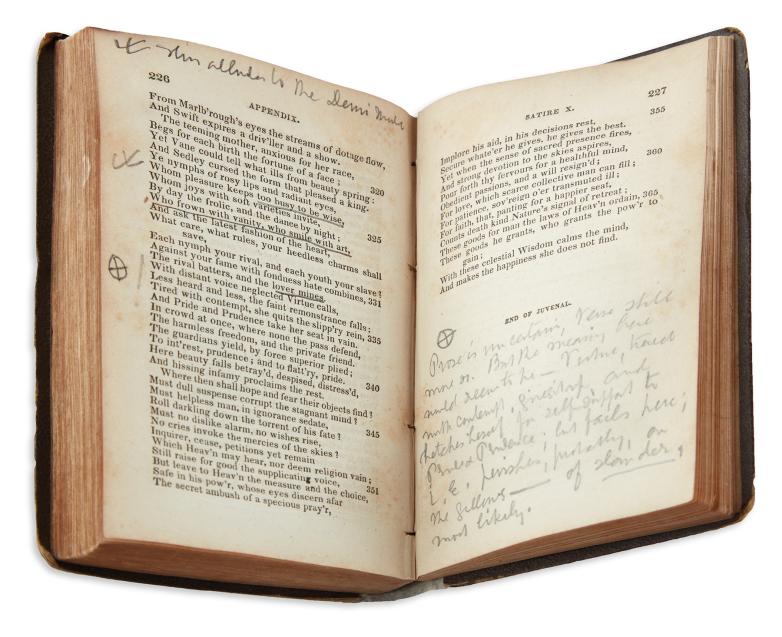 This alludes to the Demi Monde
226
APPENDIX.
From Marlb'rough's eyes the streams of dotage flow,
And Swift expires a driv'ller and a show.
The teeming mother, anxious for her race,
Begs for each birth the fortune of a face; 320
Yet Vane could tell what ills from beauty spring:
And Sedley cursed the form that pleased a king.
Ye nymphs of rosy lips and radiant eyes,
Whom pleasure keeps too busy to be wise,
Whom joys with soft varieties invite, 325
By day the frolic, and the dance by night;
Who frown with vanity, who smile with art,
And ask the latest fashion of the heart,
What care, what rules, your heedless charms shall
save,
Each nymph your rival, and each youth your slave?
Against your fame with fondness hate combines, 331
The rival batters, and the lover mines.
With distant voice neglected Virtue calls,
Less heard and less, the faint remonstrance falls;
Tired with contempt, she quits the slipp'ry rein, 335
And Pride and Prudence take her seat in vain.
In crowd at once, where none the pass defend,
The harmless freedom, and the private friend.
The guardians yield, by force superior plied;
To int'rest, prudence; and to flatt'ry, pride. 340
Here beauty falls betray'd, despised, distress'd,
And hissing infamy proclaims the rest.
Where then shall hope and fear their objects find?
Must dull suspense corrupt the stagnant mind?
Must helpless man, in ignorance sedate, 345
Roll darkling down the torrent of his fate?
Must no dislike alarm, no wishes rise,
No cries invoke the mercies of the skies?
Inquirer, cease, petitions yet remain
Which Heav'n may hear, nor deem religion vain;
Still raise for good the supplicating voice, 351
But leave to Heav'n the measure and the choice,
Safe in his pow'r, whose eyes discern afar
The secret ambush of a specious pray'r,
SATIRE X.
227
Implore his aid, in his decisions rest, 355
Secure whate'er he gives, he gives the best.
Yet when the sense of sacred presence fires,
And strong devotion to the skies aspires,
Pour forth thy fervours for a healthful mind,
Obedient passions, and a will resign'd; 360
For love, which scarce collective man can fill;
For patience, sov'reign o'er transmuted ill;
For faith, that, panting for a happier seat,
Counts death kind Nature's signal of retreat; 365
These goods for man the laws of Heav'n ordain,
These goods he grants, who grants the pow'r to
gain;
With these celestial Wisdom calms the mind,
And makes the happiness she does not find.
END OF JUVENAL.
Prose is uncertain, Verse still
more so. But the meaning here
would seem to be — Virtue, treated
with contempt, gives it up, and
betakes herself for self support to
Pride & Prudence; but fails here;
I. E. perishes, probably, on
the gallows — of slander,
most likely.